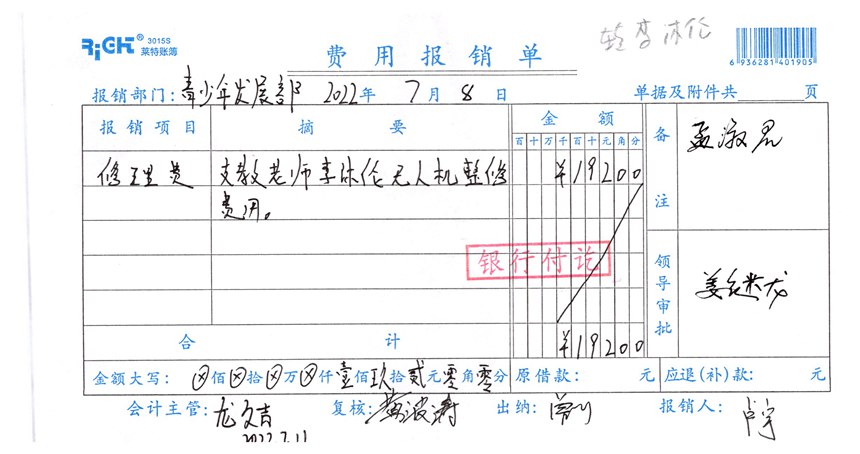 RiGHT® 3015S
莱特账簿
费用报销单
转李沐伦
6 936281 401905
报销部门：青少年发展部 2022年 7月 8日 单据及附件共 页
报销项目 摘要 金额 备注
百十万千百十元角分
修理费 支教老师李沐伦无人机整修 ¥19200
费用。
银行付讫
领导审批
合计 ¥19200
金额大写：ⓧ佰ⓧ拾ⓧ万ⓧ仟壹佰玖拾贰元零角零分 原借款： 元 应退(补)款： 元
会计主管：龙文吉 复核：黄波涛 出纳： 报销人：卢宇
2022.7.11